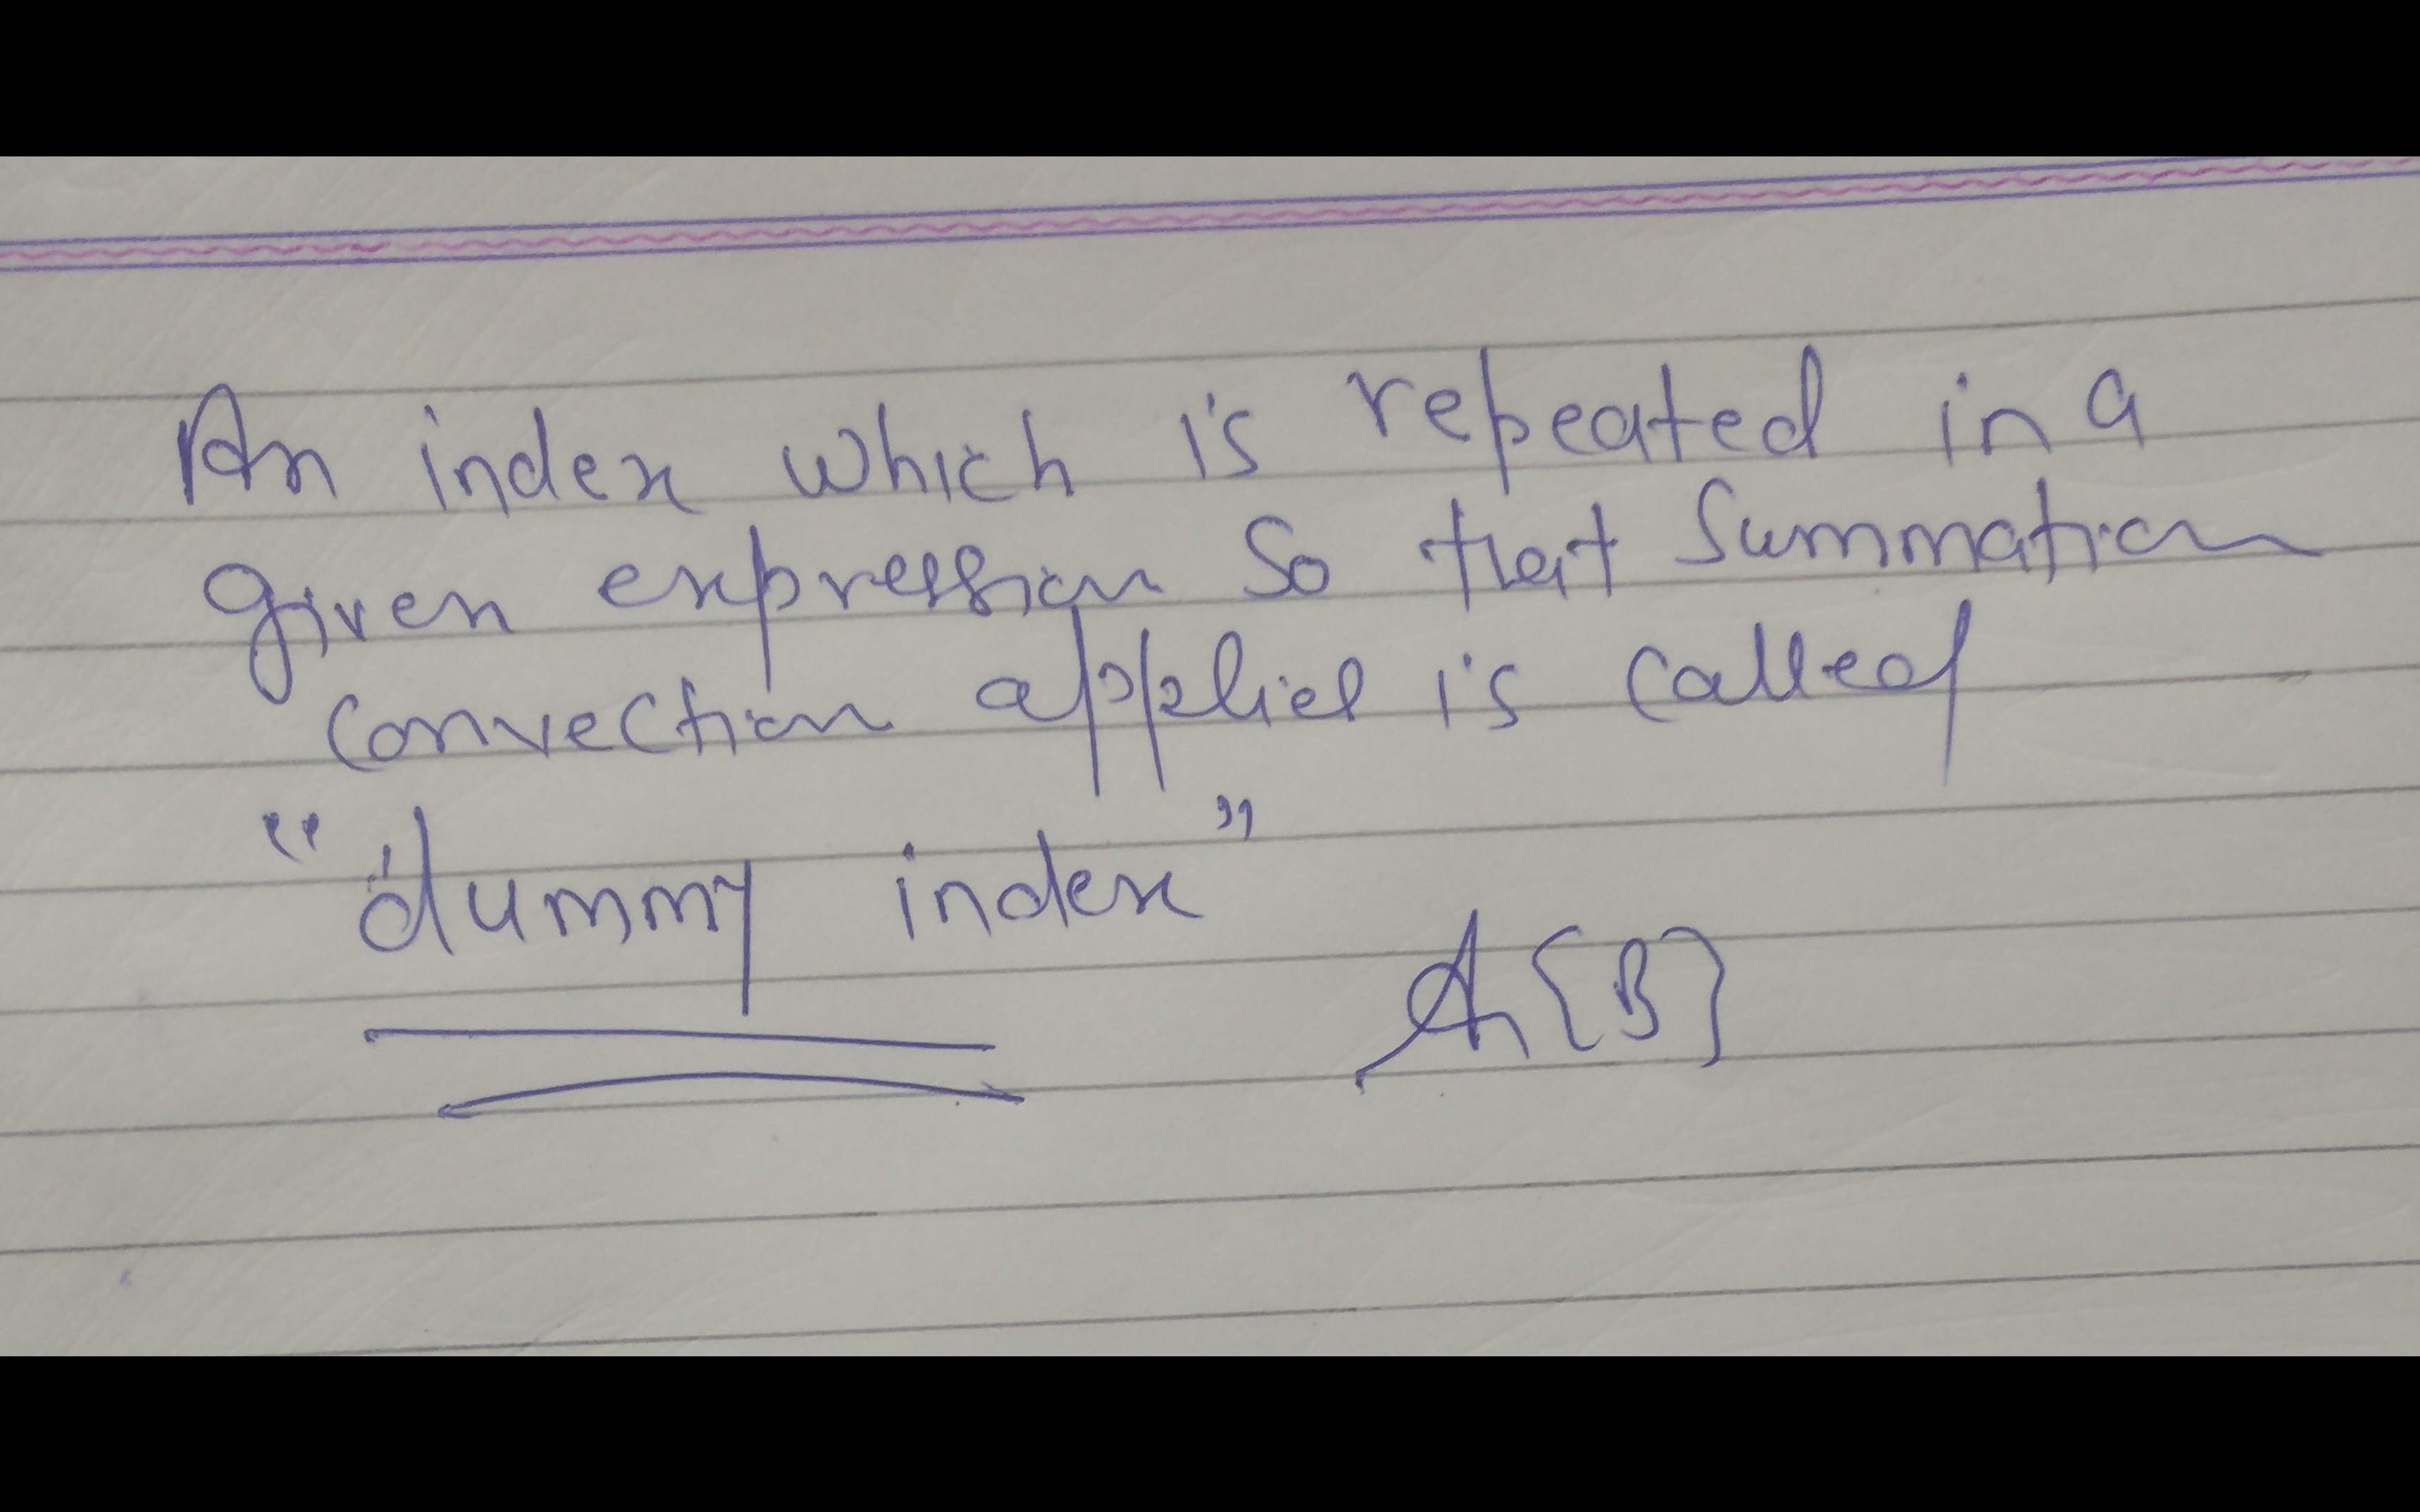 An index which is repeated in a
given expression So that Summation
Convection applied is called
"dummy index"
A{B}